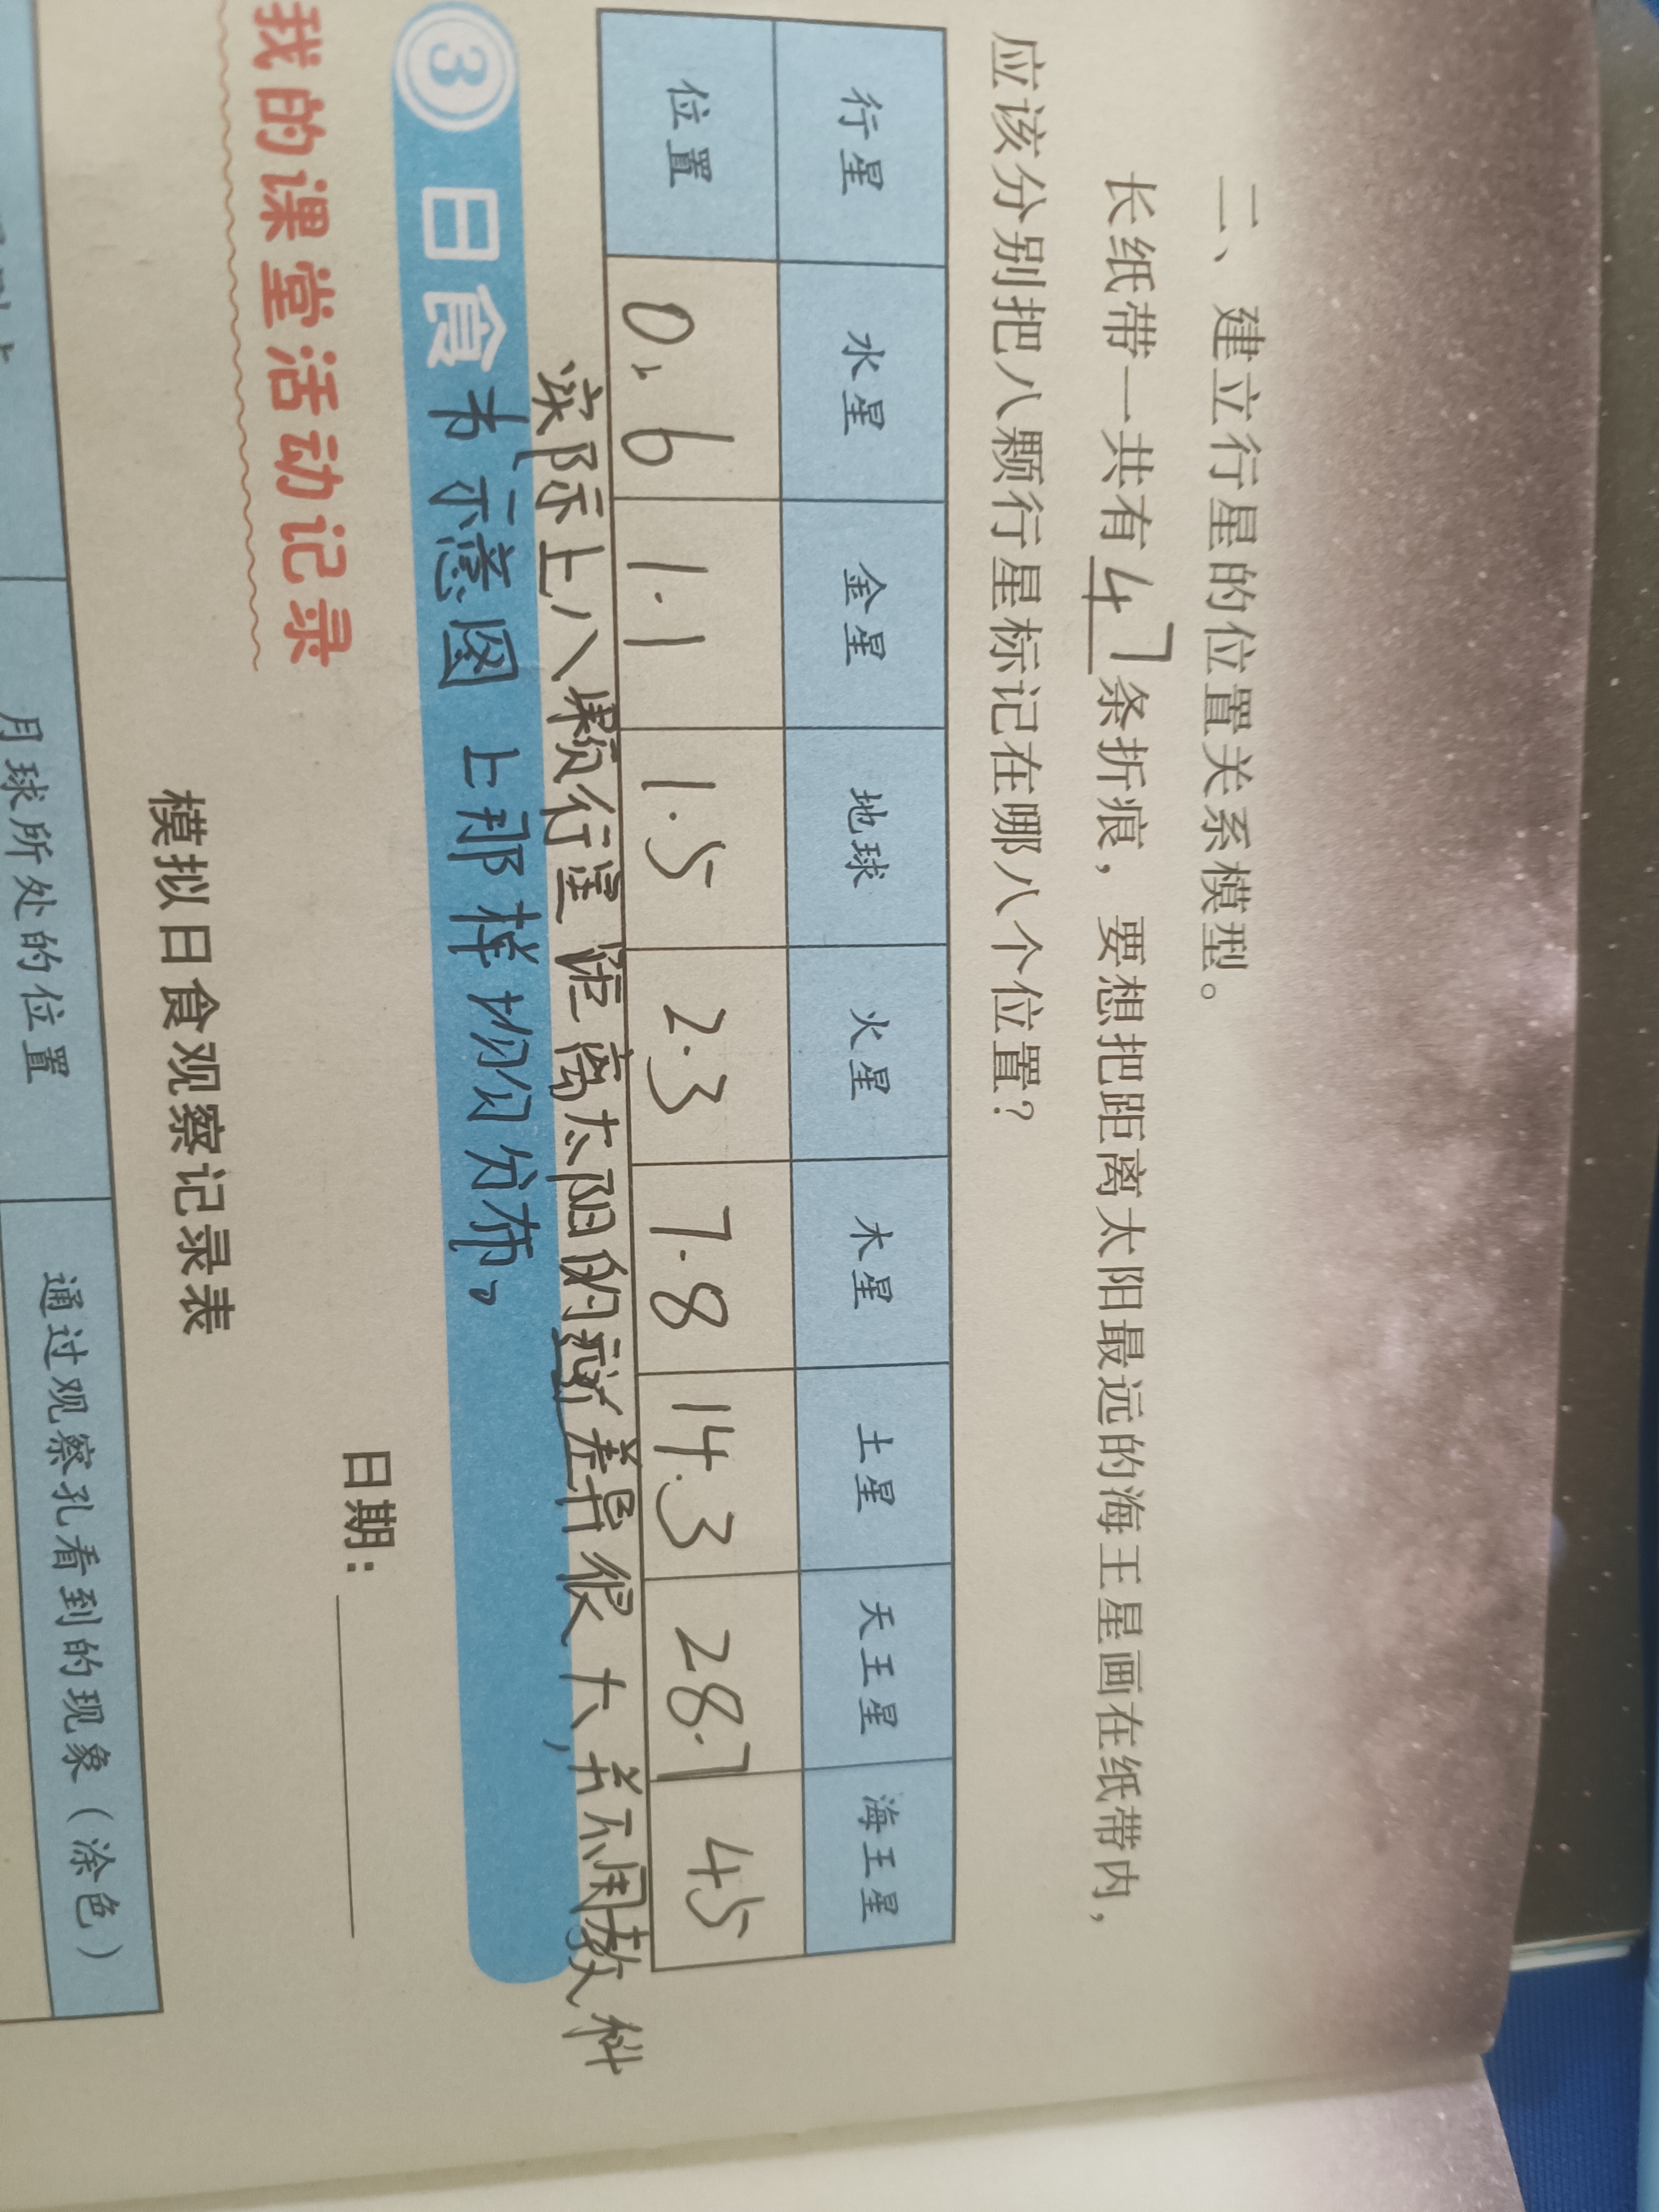 二、建立行星的位置关系模型。
长纸带一共有47条折痕，要想把距离太阳最远的海王星画在纸带内，
应该分别把八颗行星标记在哪八个位置？
行星 水星 金星 地球 火星 木星 土星 天王星 海王星
位置 0.6 1.1 1.5 2.3 7.8 14.3 28.7 45
实际上八颗行星距离太阳的远近差异很大，并不同教科
3 日食 书示意图上那样均匀分布。
我的课堂活动记录
日期：
模拟日食观察记录表
月球所处的位置 通过观察孔看到的现象（涂色）